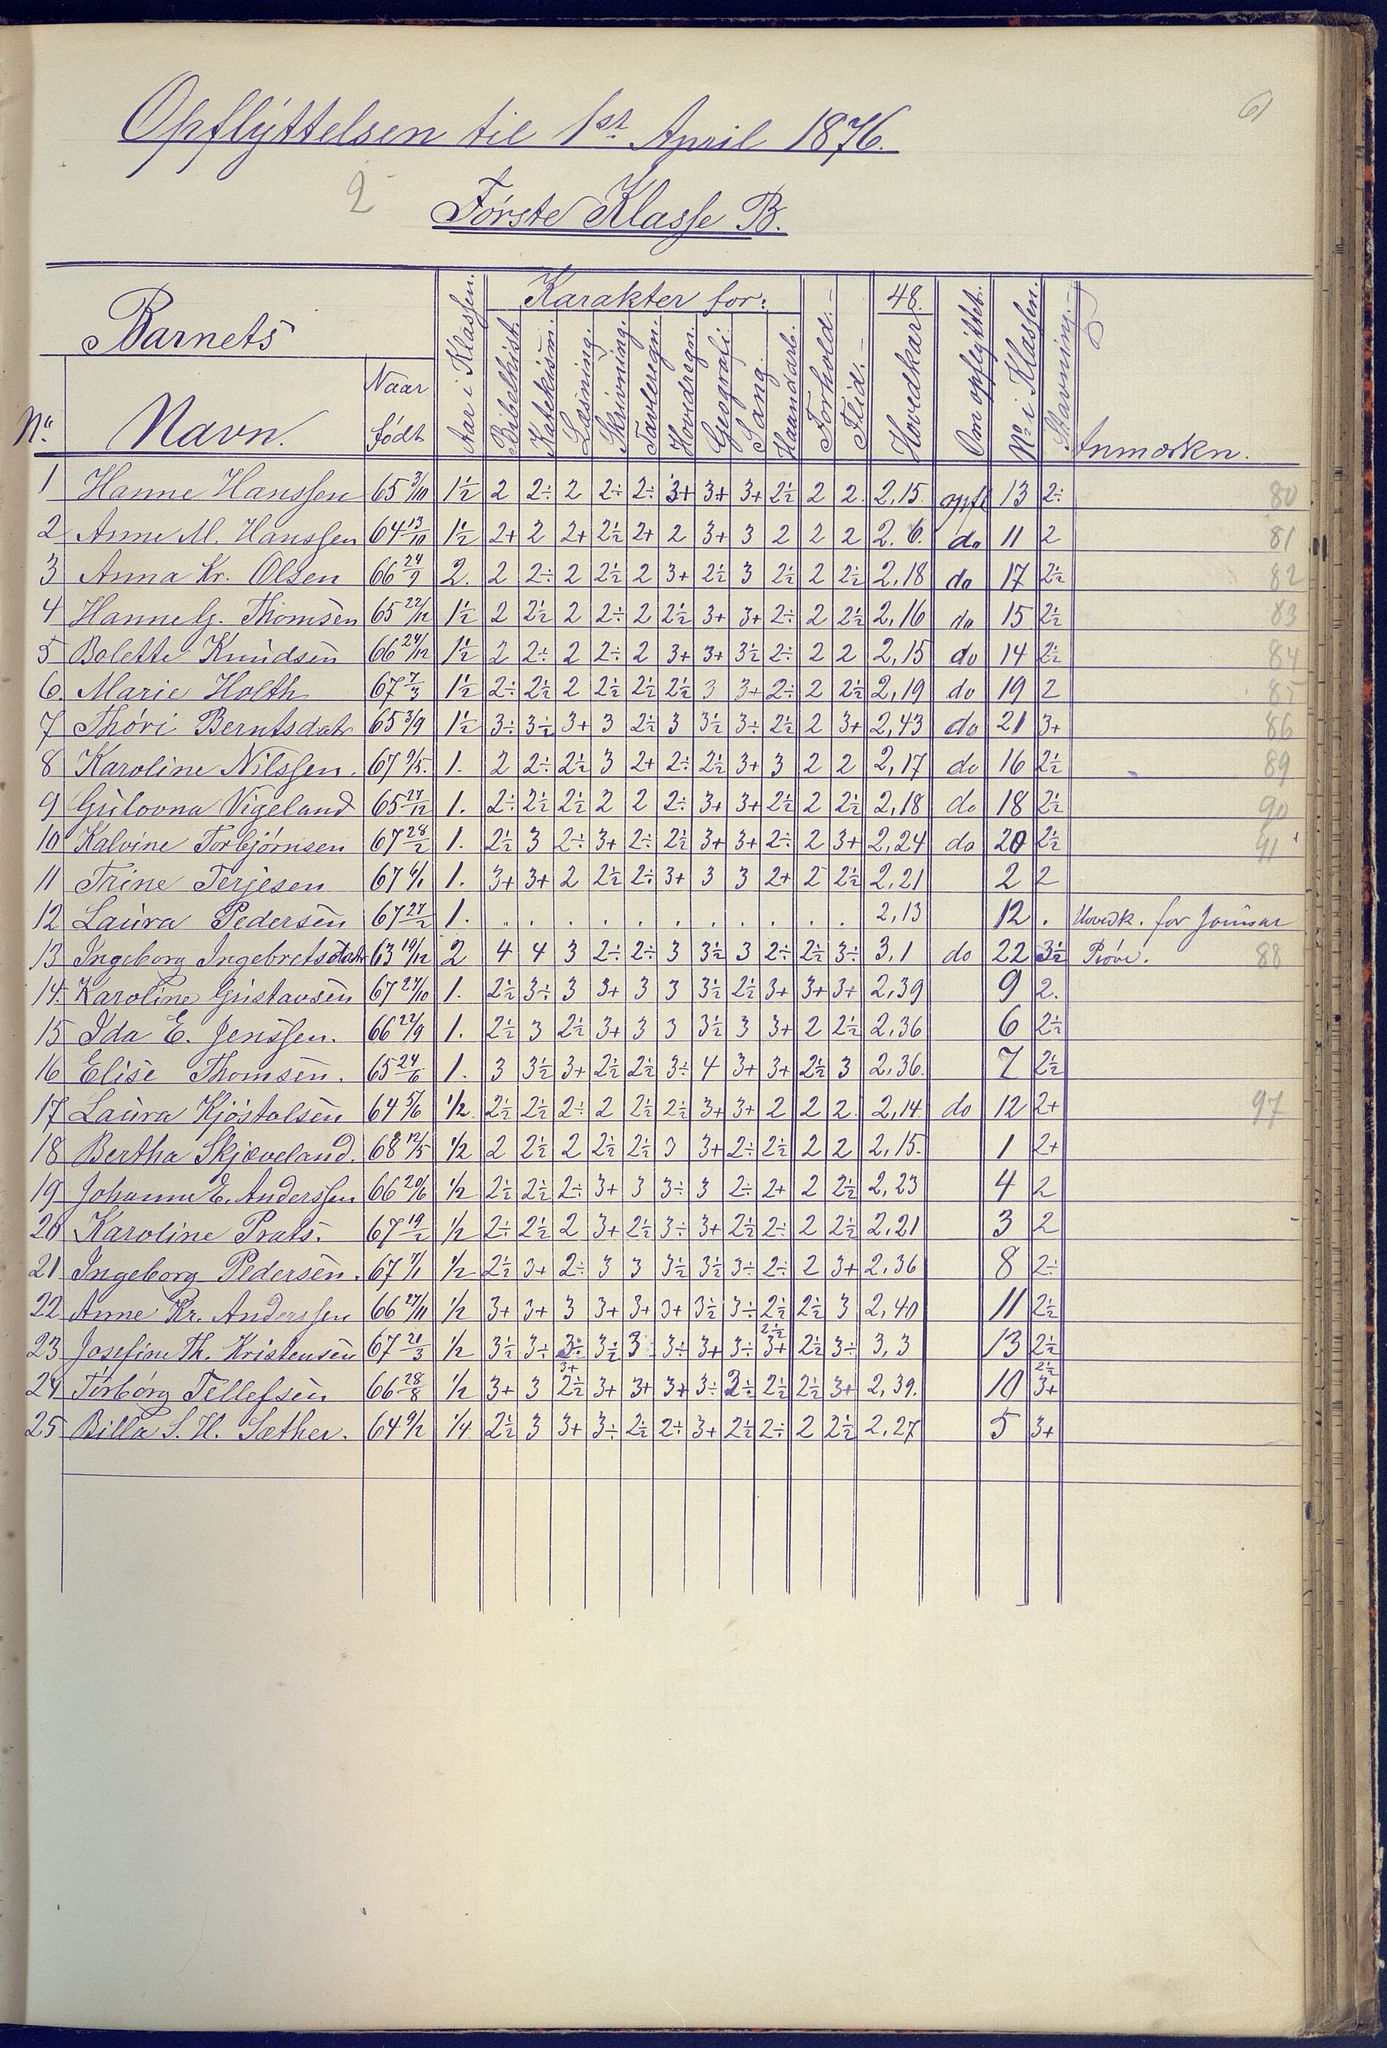 61
Opflyttelsen til 1st April 1876.
2
Første Klasse B.
Barnets
No. Navn. Naar født Aar i Klassen. Karakter for: Bibelhist. Katekism. Læsning. Skrivning. Tavleregn. Hovdregn. Geografi. Sang. Haandarb. Forhold. Flid. 48. Hovedkar. Om opflyttet. No i Klassen. Stavning. Anmærkn.
1 Hanne Hanssen 65 3/10 1½ 2 2÷ 2 2÷ 2÷ 3+ 3+ 3+ 2½ 2 2. 2,15. opfl 13 2÷ 80
2 Anne M. Hanssen 64 13/10 1½ 2+ 2 2+ 2½ 2+ 2 3+ 3 2 2 2 2. 6. do 11 2 81
3 Anna Kr. Olsen 66 24/9 2. 2 2÷ 2 2½ 2 3+ 2½ 3 2½ 2 2½ 2,18 do 17 2½ 82
4 Hanne G. Thomsen 65 22/12 1½ 2 2½ 2 2÷ 2 2½ 3+ 3+ 2÷ 2 2½ 2,16 do 15 2½ 83
5 Bolette Knudsen 66 24/12 1½ 2 2÷ 2 2÷ 2 3+ 3+ 3½ 2÷ 2 2 2,15 do 14 2½ 84
6. Marie Holth 67 7/3 1½ 2÷ 2½ 2 2½ 2½ 2½ 3 3+ 2÷ 2 2½ 2,19 do 19 2 85
7 Thóri Berntsdatr 65 3/9 1½ 3÷ 3½ 3+ 3 2½ 3 3½ 3÷ 2½ 2 3+ 2,43 do 21 3+ 86
8 Karoline Nilssen. 67 9/5. 1. 2 2÷ 2½ 3 2+ 2÷ 2½ 3+ 3 2 2 2,17 do 16 2½ 89
9 Gulovna Vigeland 65 27/12 1. 2÷ 2½ 2½ 2 2 2÷ 3+ 3+ 2½ 2 2½ 2,18 do 18 2½ 90
10 Kalvine Torbjørnsen 67 28/2 1. 2½ 3 2÷ 3+ 2÷ 2½ 3+ 3+ 2÷ 2 3+ 2,24 do 20 2½ 91
11 Trine Terjesen 67 6/1 1. 3+ 3+ 2 2½ 2÷ 3+ 3 3 2+ 2 2½ 2,21 2 2
12 Laura Pedersen 67 27/2 1. . . . . . . . . . . . 2,13 12 . Hovedk. for Januar
13 Ingeborg Ingebretsdatr 63 19/12 2 4 4 3 2÷ 2÷ 3 3½ 3 2÷ 2½ 3÷ 3,1 do 22 3½ Prøve. 88
14. Karoline Gustavsen 67 27/10 1. 2½ 3÷ 3 3+ 3 3 3½ 2½ 3+ 3+ 3+ 2,39 9 2.
15 Ida E. Jenssen. 66 22/9 1. 2½ 3 2½ 3+ 3 3 3½ 3 3+ 2 2½ 2,36 6 2½
16 Elise Thomsen. 65 24/6 1. 3 3½ 3+ 2½ 2½ 3÷ 4 3+ 3+ 2½ 3 2,36. 7 2½
17 Laura Kjøstolsen 64 5/6 ½. 2½ 2½ 2÷ 2 2½ 2½ 3+ 3+ 2 2 2. 2,14. do 12 2+ 97
18 Bertha Skjæveland. 68 12/5 ½ 2 2½ 2 2½ 2½ 3 3+ 2÷ 2½ 2 2 2,15. 1 2+
19 Johanne E. Anderssen 66 20/6 ½ 2½ 2½ 2÷ 3+ 3 3÷ 3 2÷ 2+ 2 2½ 2,23 4 2
20 Karoline Prats. 67 19/2 ½ 2÷ 2½ 2 3+ 2½ 3÷ 3+ 2½ 2÷ 2 2½ 2,21 3 2
21 Ingeborg Pedersen. 67 7/1 ½ 2½ 3+ 2÷ 3 3 3½ 3½ 3÷ 2÷ 2 3+ 2,36 8 2÷
22 Anne Kr. Anderssen 66 27/11 ½ 3+ 3+ 3 3+ 3+ 3+ 3½ 3÷ 2½ 2½ 3 2,40 11 2½
23 Josefine Th. Kristensen 67 21/3 ½ 3½ 3÷ 3÷ 3½ 3 3÷ 3+ 3÷ 2½ 3+ 2½ 3÷ 3,3 13 2½
24 Torborg Tellefsen 66 28/8 ½ 3+ 3 3+ 2½ 3+ 3+ 3+ 3÷ 2½ 2½ 2½ 3+ 2,39. 10 2½ 3+
25 Billa S. H. Sæther. 64 9/2 ¼ 2½ 3 3+ 3÷ 2½ 2÷ 3+ 2½ 2÷ 2 2½ 2,27 5 3+